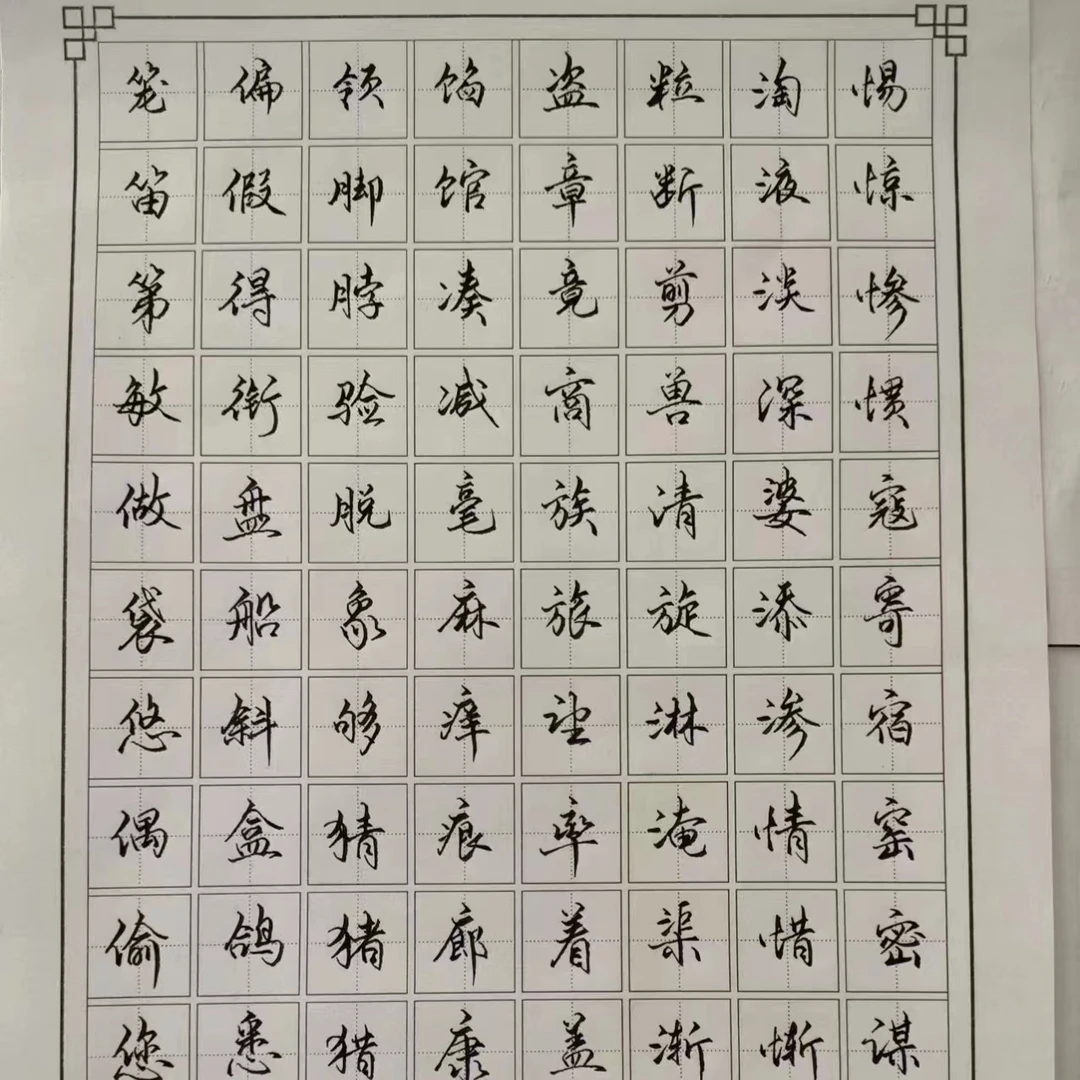 笼笛第敏做袋悠偶偷您
偏假得衔盘船斜盒鸽悉
领脚脖验脱象够猜猪猎
馅馆凑减毫麻痒痕廊康
盗章竟商族旅望率着盖
粒断剪兽清旋淋淹渠渐
淘液淡深婆添渗情惜惭
惕惊惨惯寇寄宿窑密谋